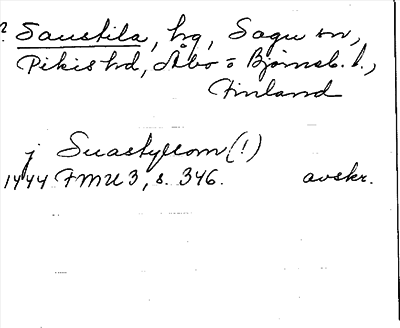 ? Saustila, hg, Sagu sn,
Pikis hd, Åbo = Björneb. l.,
Finland
j Suastyllom (!)
1444 FMU 3, s. 346. avskr.